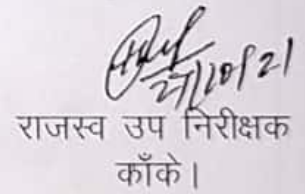 27/10/21
राजस्व उप निरीक्षक
काँके।